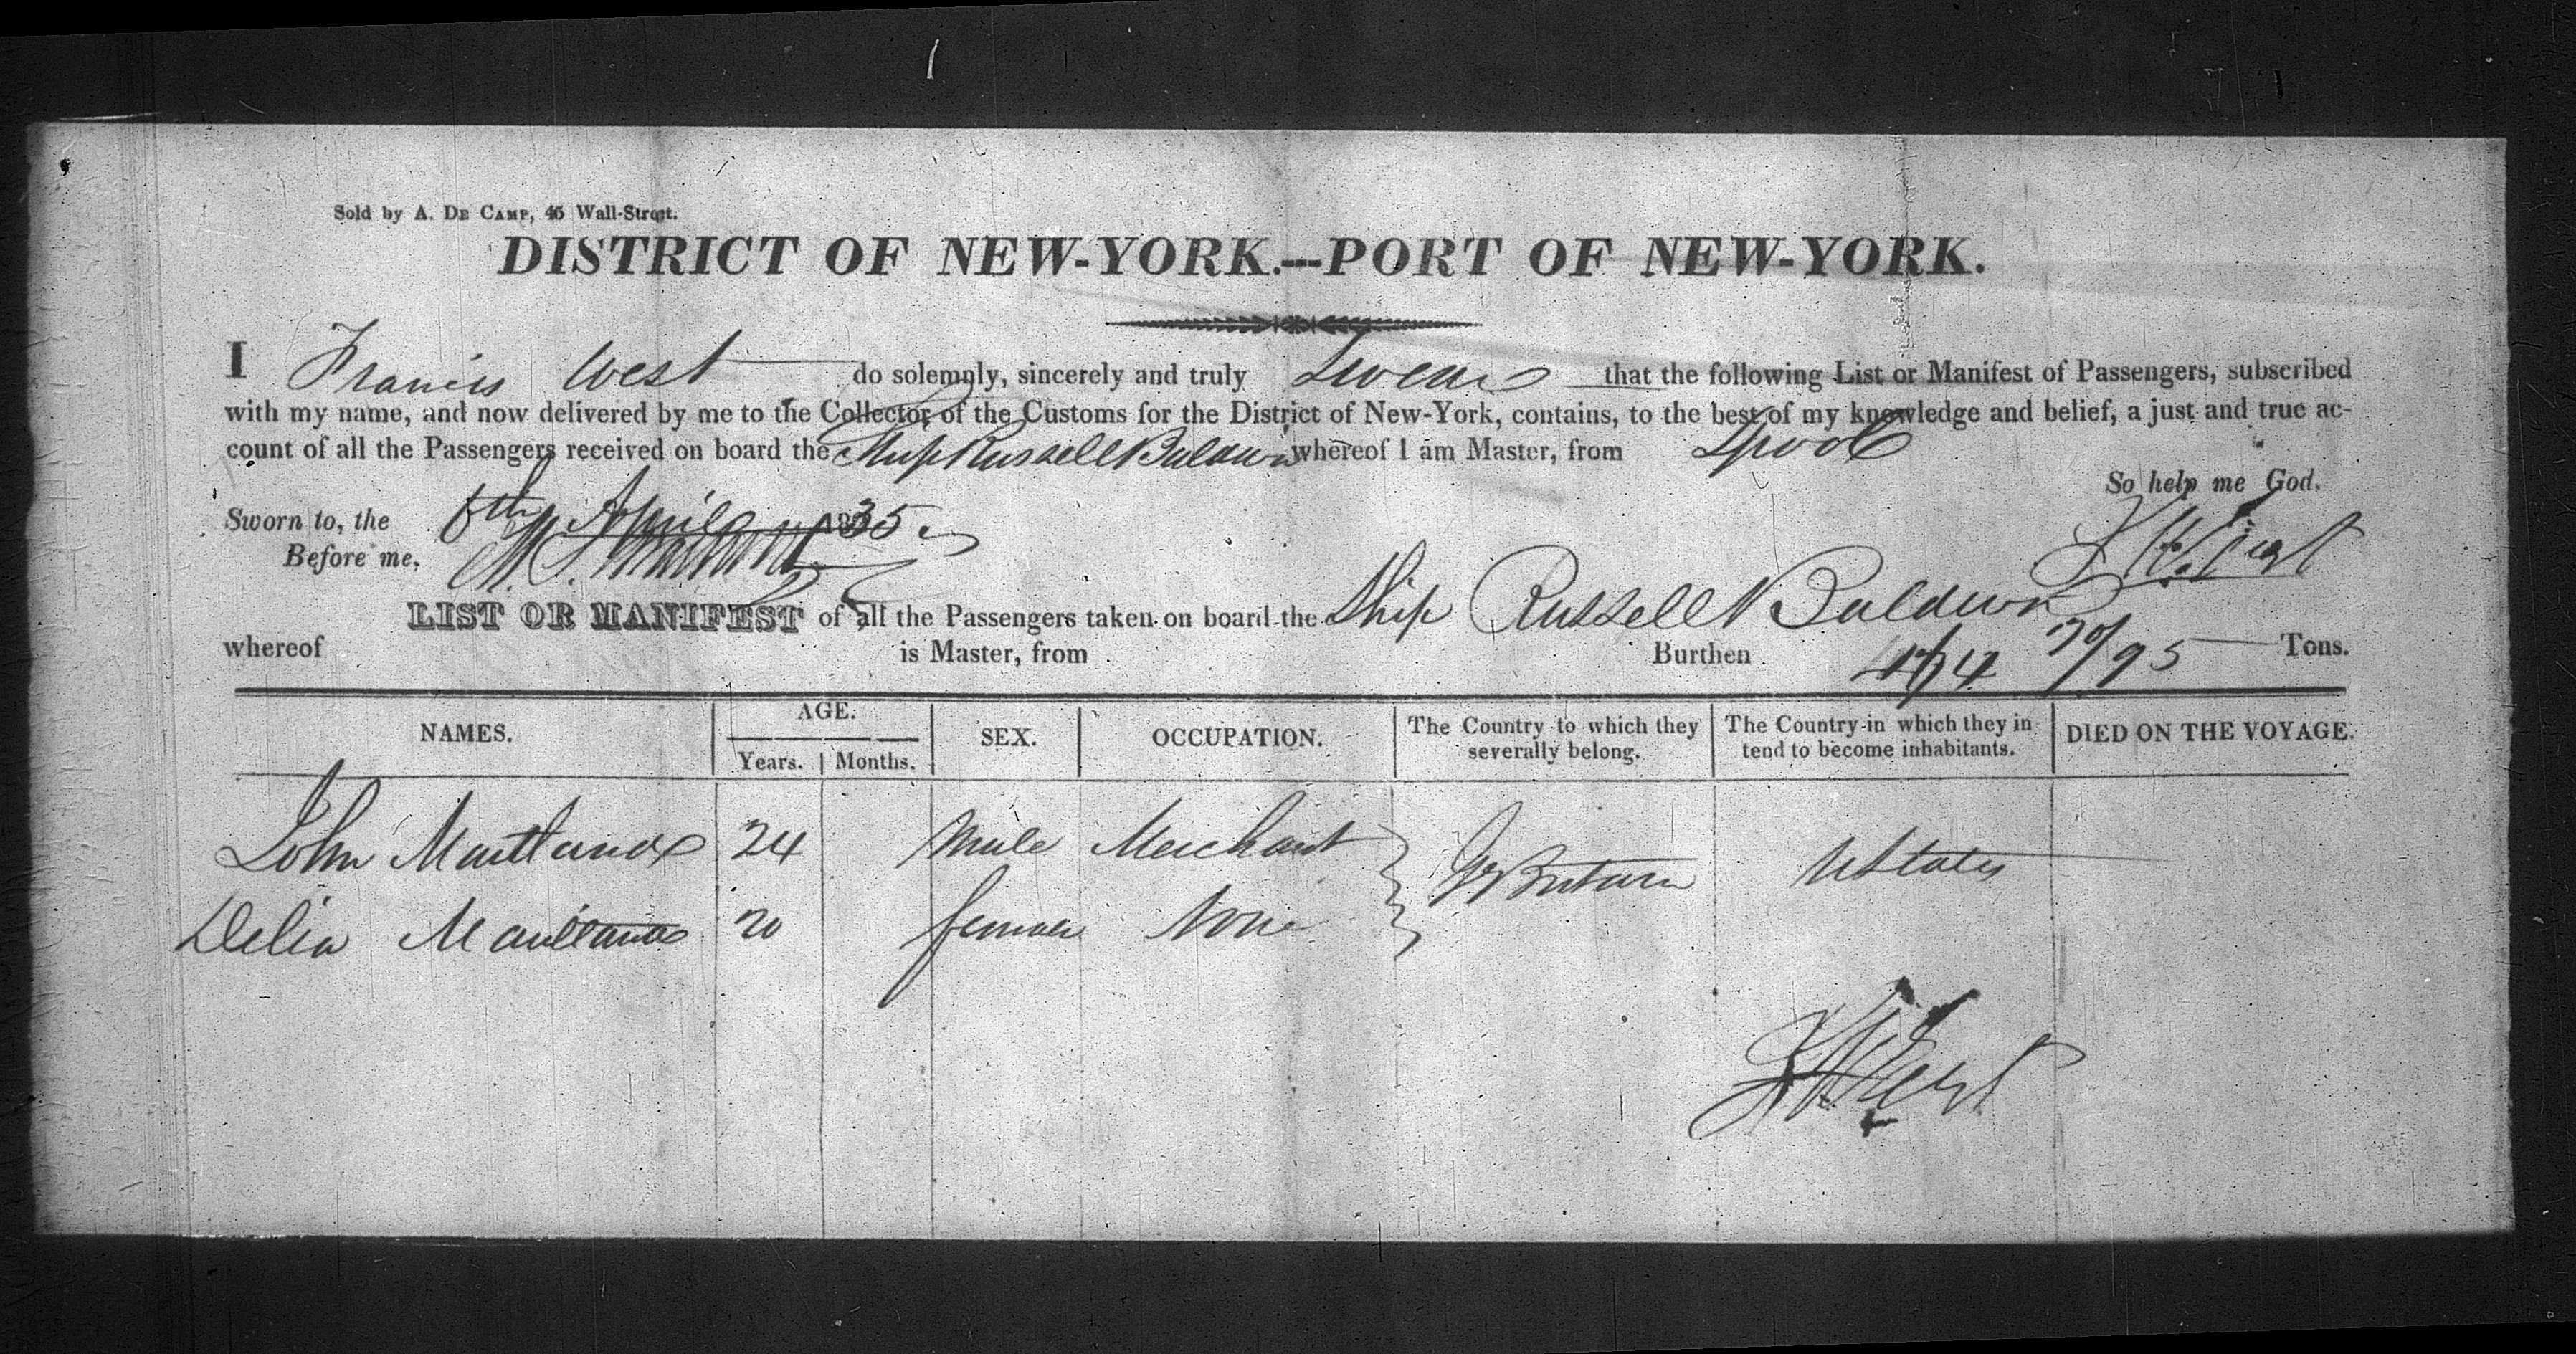 Sold by A. DE CAMP, 45 Wall-Street.
DISTRICT OF NEW-YORK.---PORT OF NEW-YORK.
I Francis West do solemnly, sincerely and truly Swear that the following List or Manifest of Passengers, subscribed
with my name, and now delivered by me to the Collector of the Customs for the District of New-York, contains, to the best of my knowledge and belief, a just and true ac-
count of all the Passengers received on board the Ship Russell Baldwin whereof I am Master, from Lpool
So help me God.
Sworn to, the 8th April 1835
Before me,
F West
LIST OR MANIFEST of all the Passengers taken on board the Ship Russell Baldwin
whereof is Master, from Burthen 70/95 Tons.
NAMES. AGE. SEX. OCCUPATION. The Country to which they severally belong. The Country in which they in tend to become inhabitants. DIED ON THE VOYAGE.
Years. Months.
John Maitland 24 Male Merchant Gr Britain UStates
Delia Maitland 20 female None
F West